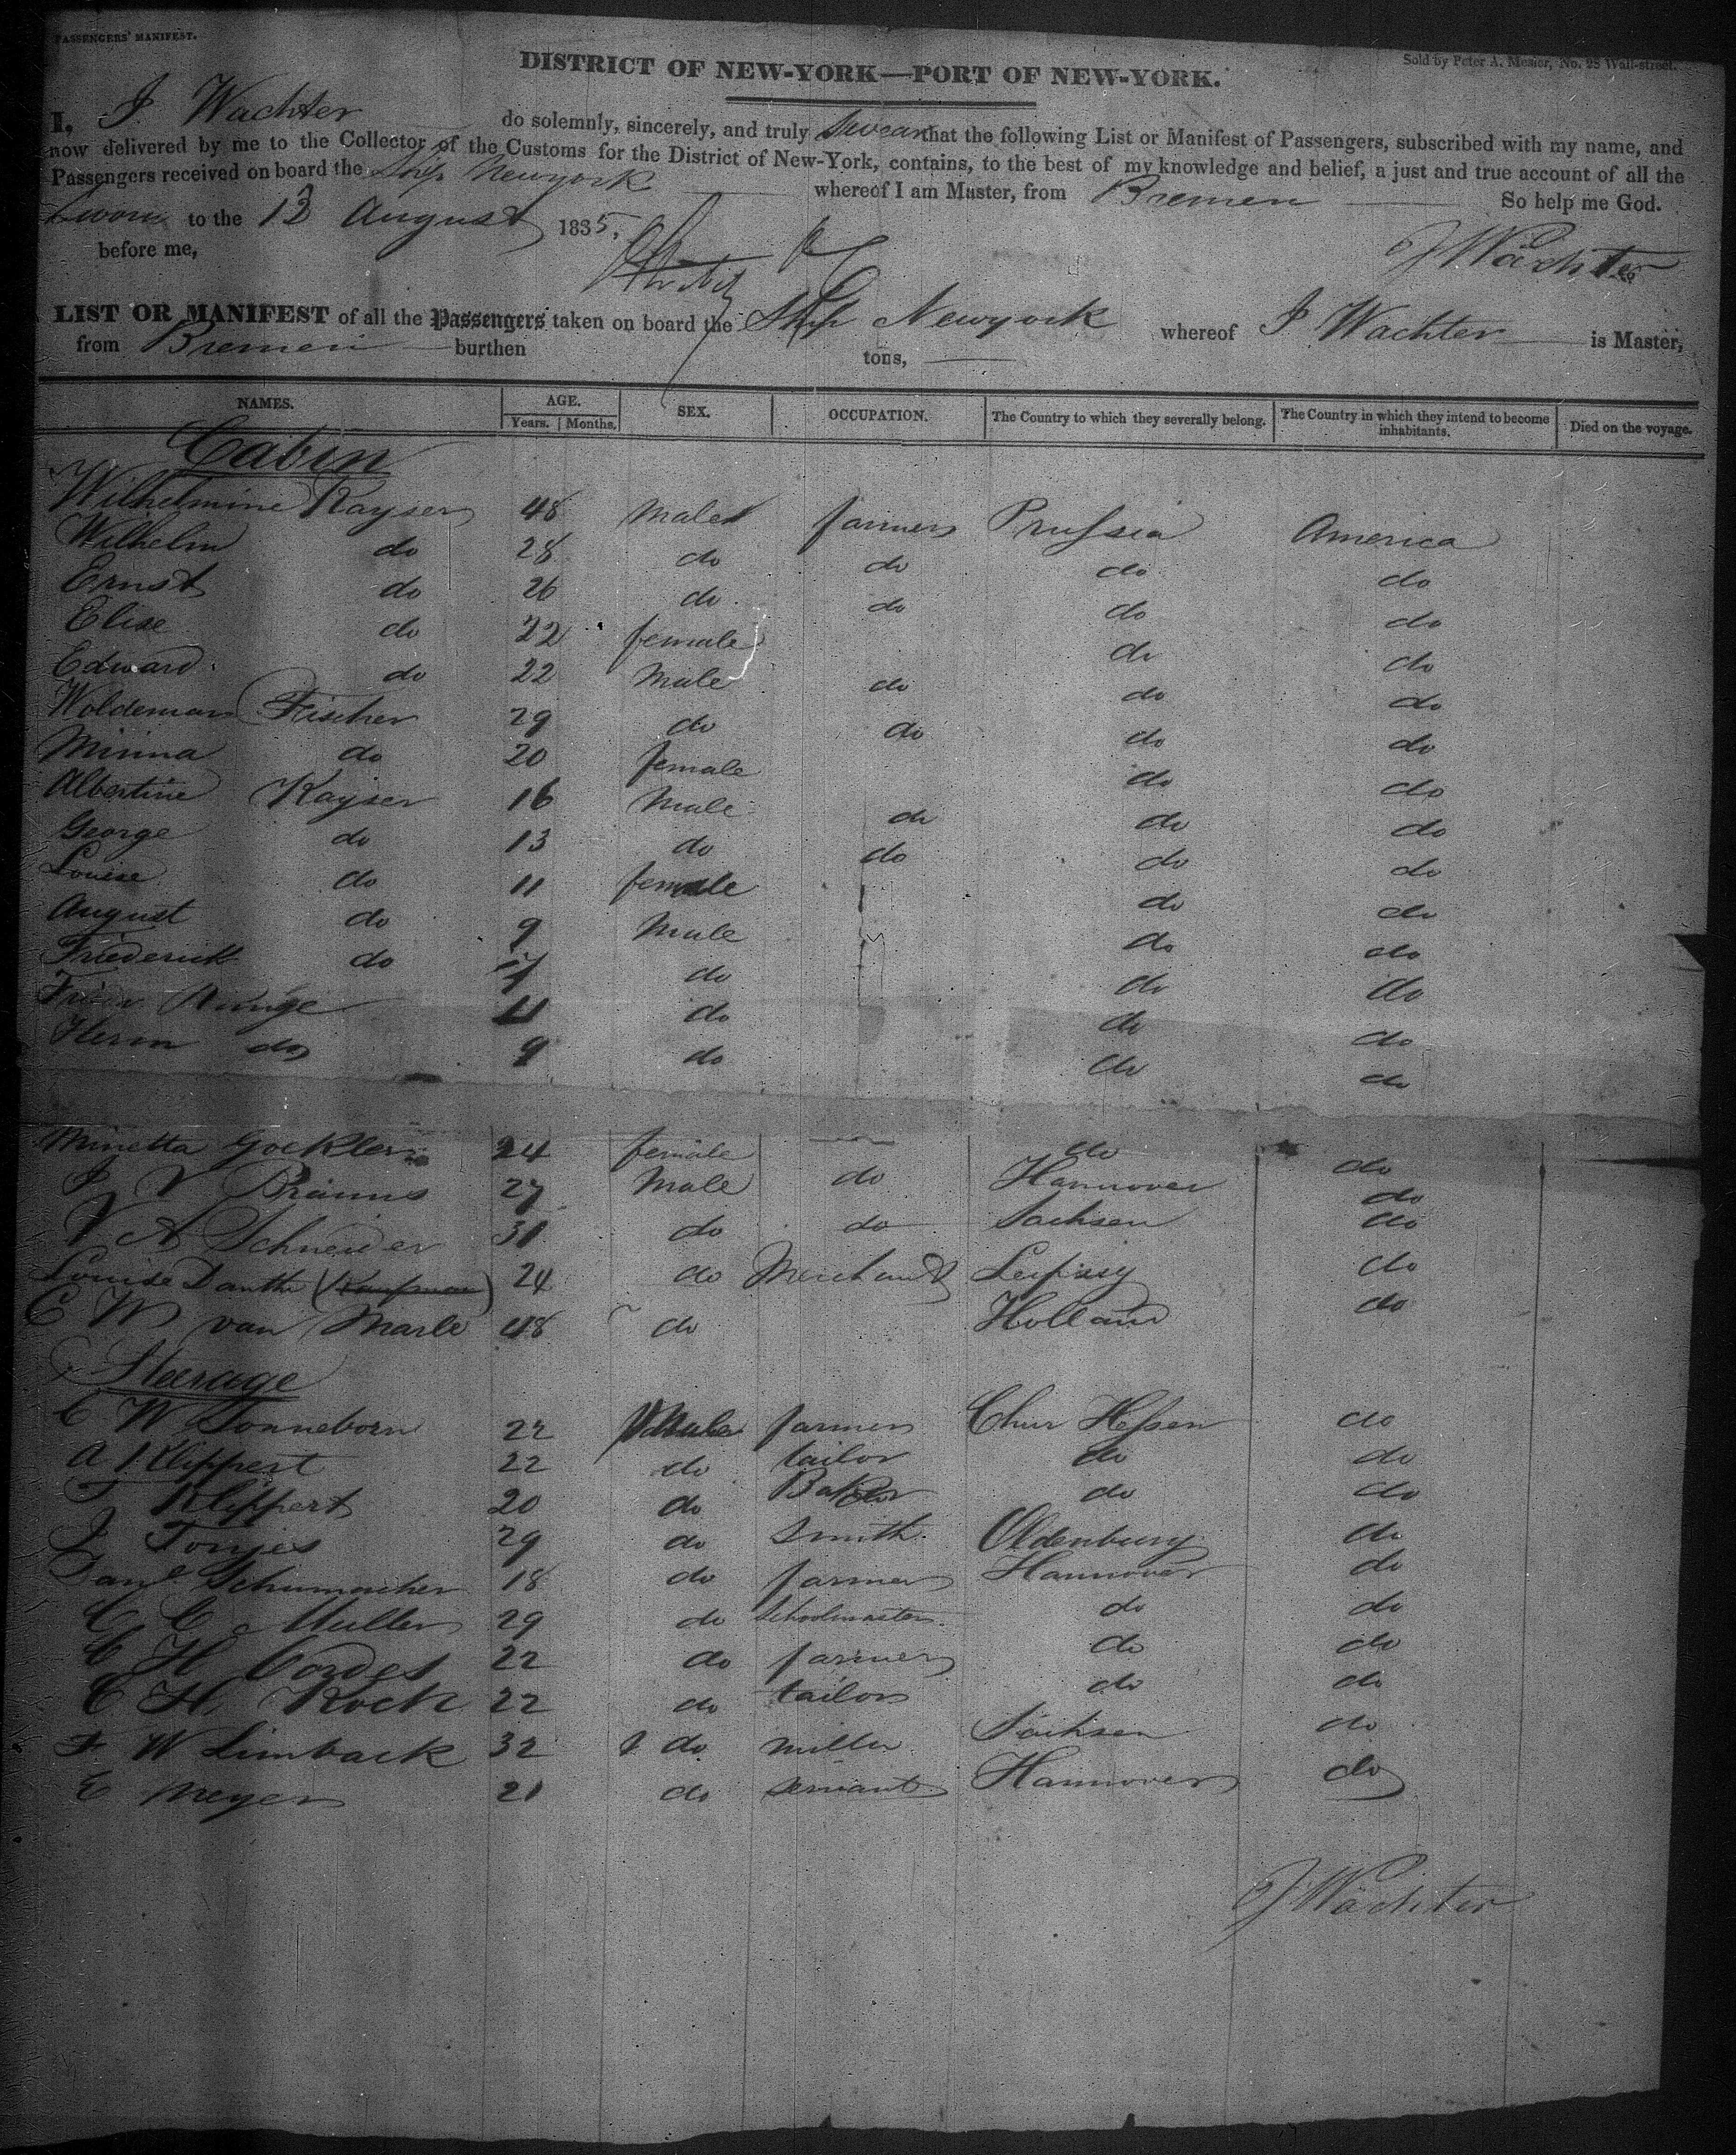 PASSENGERS' MANIFEST.
Sold by Peter A. Mesier, No. 28 Wall-street.
DISTRICT OF NEW-YORK—PORT OF NEW-YORK.
I, J. Wachter do solemnly, sincerely, and truly Swear that the following List or Manifest of Passengers, subscribed with my name, and
now delivered by me to the Collector of the Customs for the District of New-York, contains, to the best of my knowledge and belief, a just and true account of all the
Passengers received on board the Ship Newyork whereof I am Master, from Bremen So help me God.
Sworn to the 13 August 1835,
before me,
J Wächter
LIST OR MANIFEST of all the Passengers taken on board the Ship Newyork whereof J Wachter is Master,
from Bremen burthen tons,
NAMES. AGE. SEX. OCCUPATION. The Country to which they severally belong. The Country in which they intend to become inhabitants. Died on the voyage.
Years. Months.
Cabin
Wilhelmine Kayser 48 Male farmer Prussia America
Wilhelm do 28 do do do do
Ernst do 26 do do do do
Elise do 22 female do do
Edward do 22 Male do do do
Woldemar Fischer 29 do do do do
Minna do 20 female do do
Albertine Kayser 16 Male do do do
George do 13 do do do do
Louise do 11 female do do
August do 9 Male do do
Friederick do 7 do do do
Runge 11 do do do
Herm do 9 do do do
Minetta Gockler 24 female do do
J V Brauns 27 Male do Hannover do
V A Schneider 31 do do Sachsen do
Louise Danthe 24 do Merchant Leipsig do
C W van Marle 48 do Holland do
Stearage
C W Sonneborn 22 Male farmer Chur Hessen do
A Klippert 22 do tailor do do
F Klippert 20 do Baker do do
J Tonjes 29 do Smith Oldenburg do
Danl Schumacher 18 do farmer Hannover do
C C Muller 29 do Schoolmaster do do
C H Cordes 22 do farmer do do
C H. Rock 22 do tailor do do
F W Limback 32 do miller Sachsen do
E Meyer 21 do servant Hannover do
J Wächter